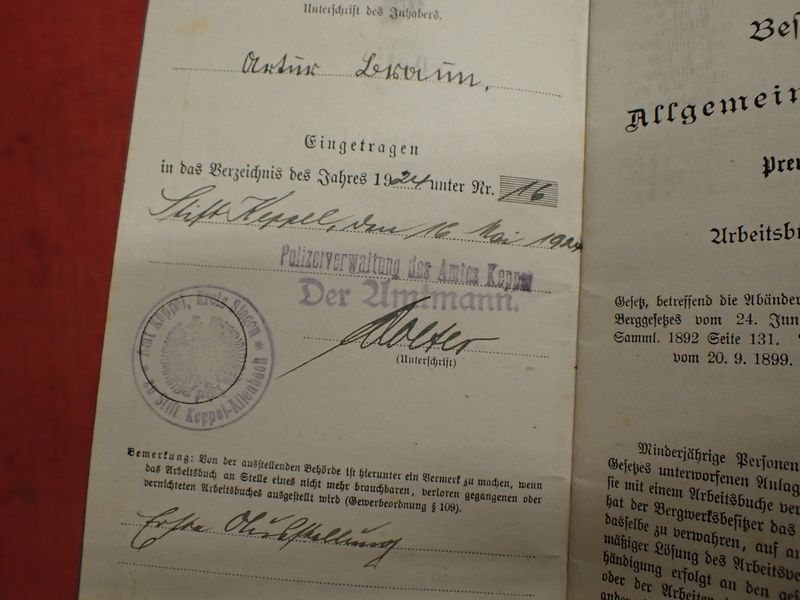 Unterschrift des Inhabers.
Artur Braun,
Eingetragen
in das Verzeichnis des Jahres 1924 unter Nr. 16
Stift Keppel, den 16 Mai 1924
Polizeiverwaltung des Amtes Keppel
Der Amtmann.
(Unterschrift)
* Amt Keppel, Kreis Siegen *
zu Stift Keppel-Allenbach
Bemerkung: Von der ausstellenden Behörde ist hierunter ein Vermerk zu machen, wenn
das Arbeitsbuch an Stelle eines nicht mehr brauchbaren, verloren gegangenen oder
vernichteten Arbeitsbuches ausgestellt wird (Gewerbeordnung § 109).
Erste Ausstellung
Bes
Allgemein
Preu
Arbeitsbu
Gesetz, betreffend die Abände
Berggesetzes vom 24. Jun
Samml. 1892 Seite 131.
vom 20. 9. 1899.
Minderjährige Personen
Gesetzes unterworfenen Anlag
sie mit einem Arbeitsbuche ver
hat der Bergwerksbesitzer das
dasselbe zu verwahren, auf am
mäßiger Lösung des Arbeitsve
händigung erfolgt an den ges
oder der Arbeiter